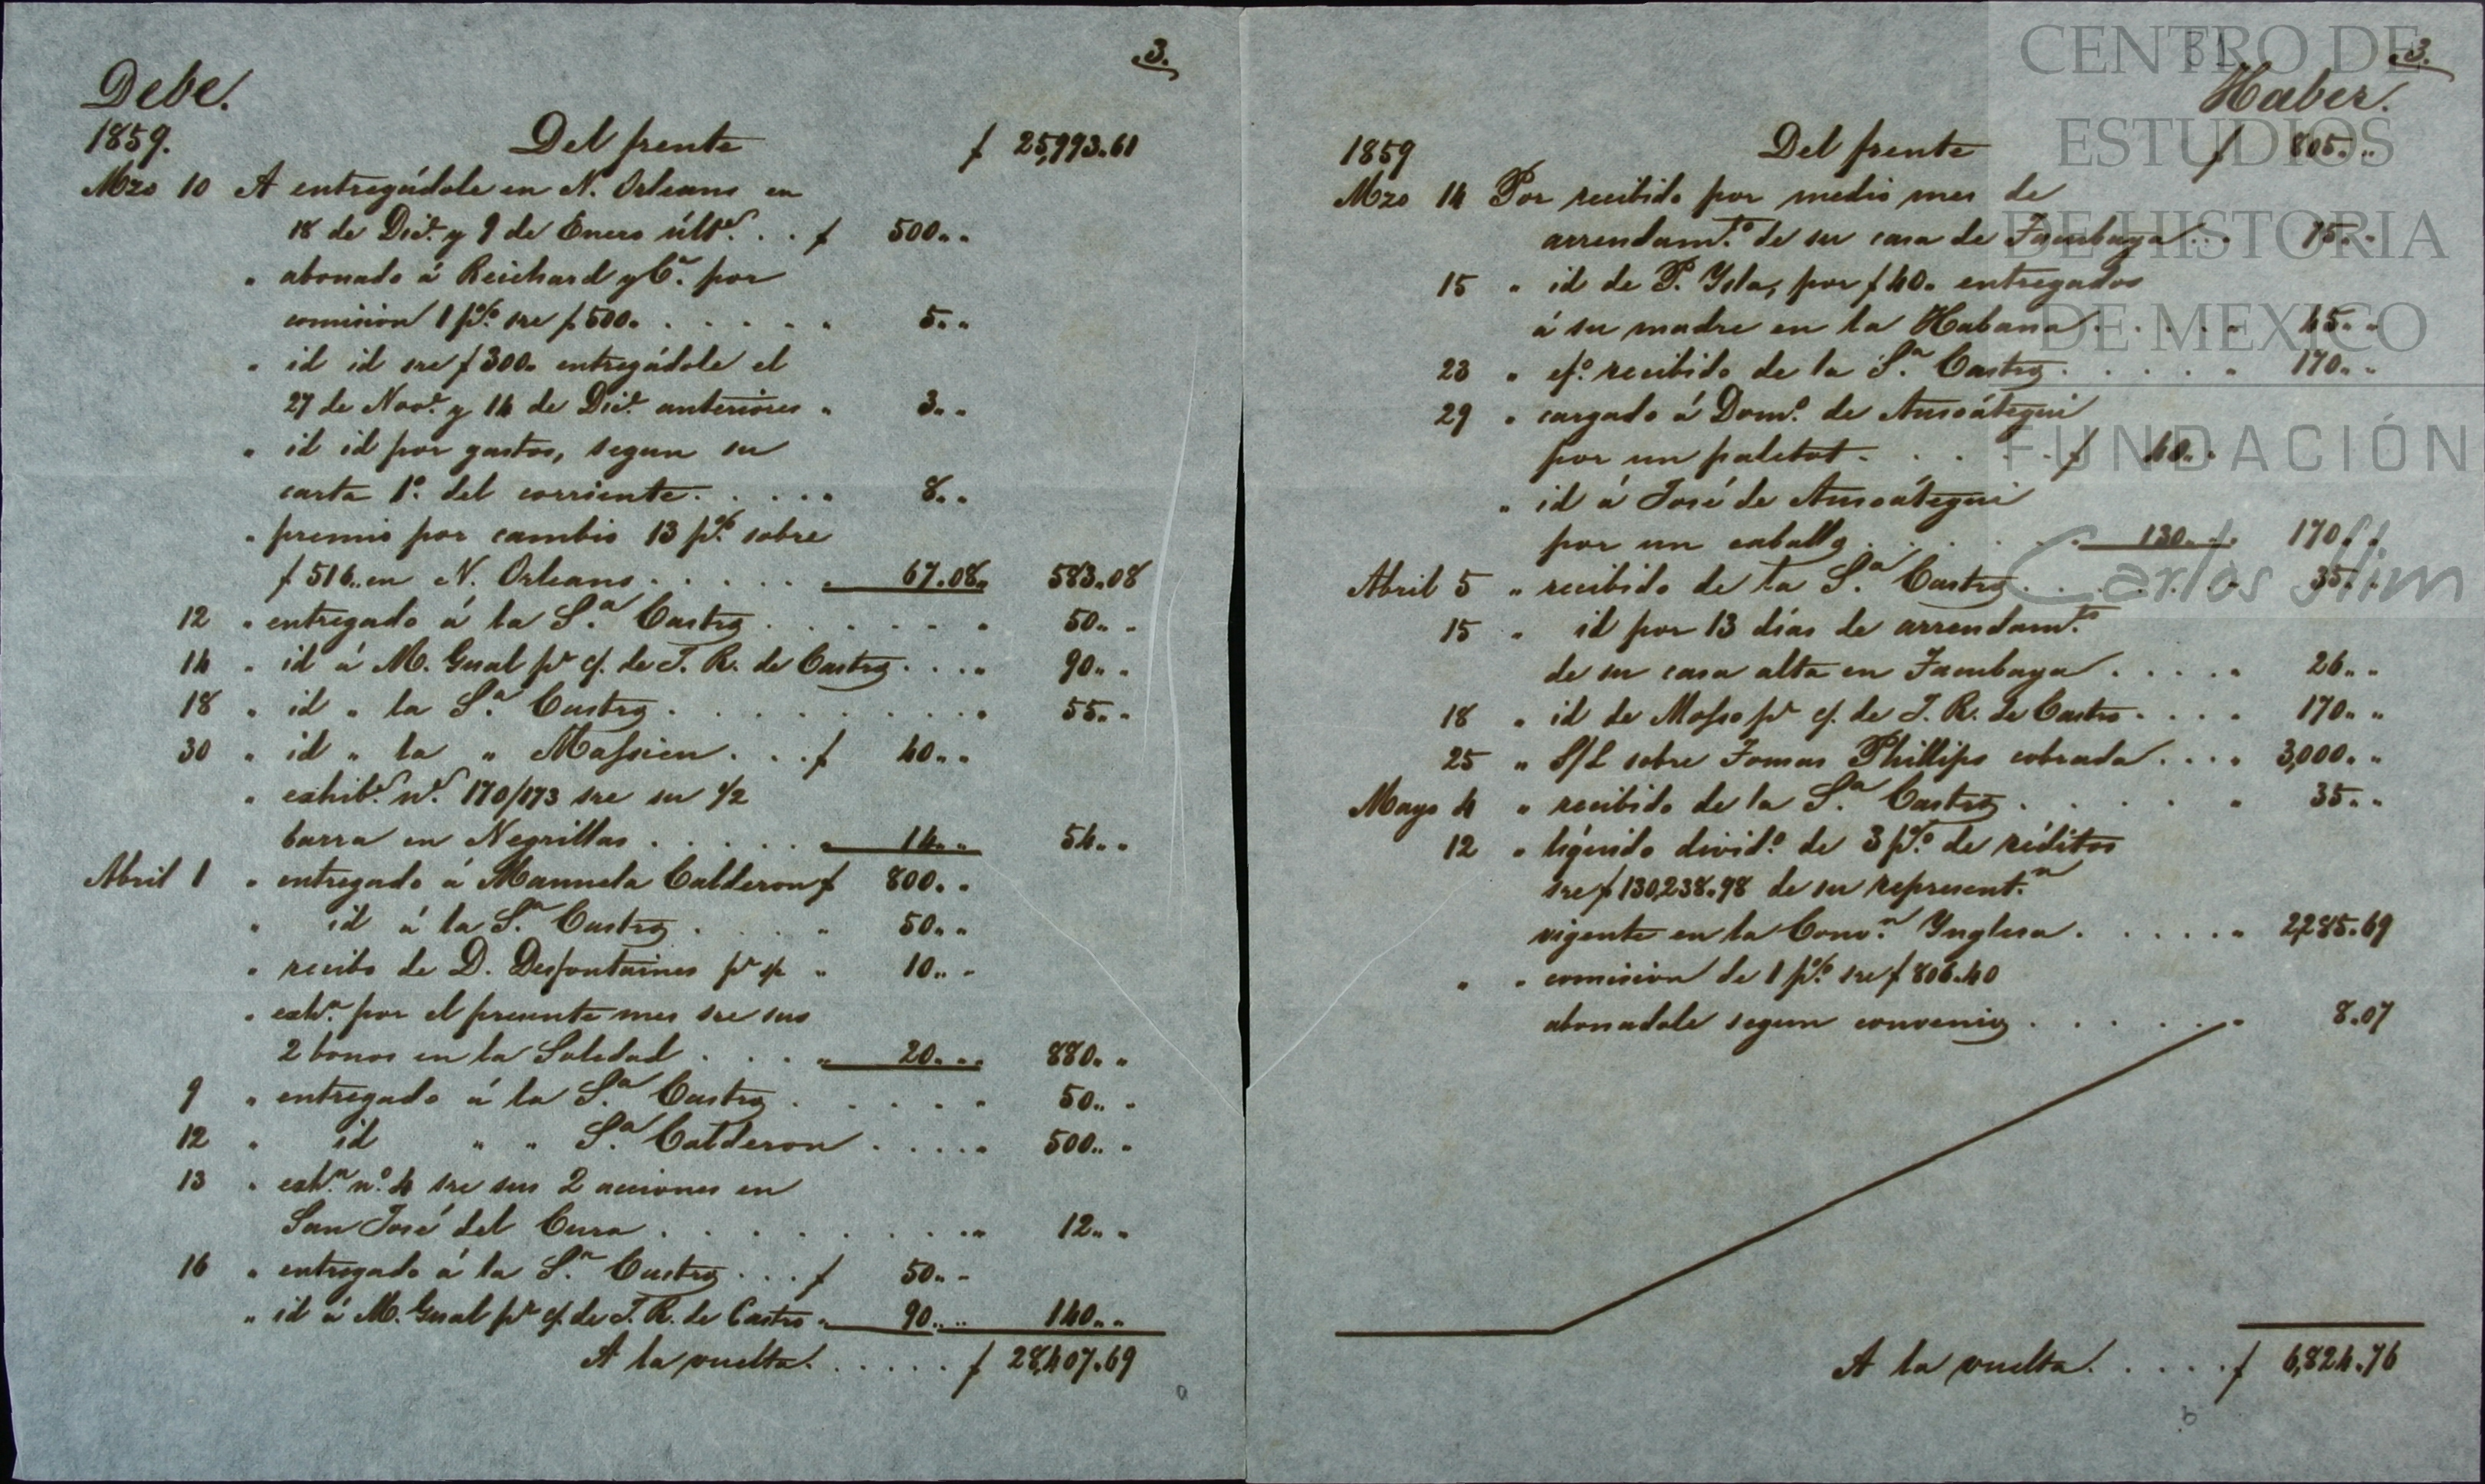 3.
Debe.
1859. Del frente $ 25,993.61
Mzo 10 A entregádole en N. Orleans en
18 de Dice. y 9 de Enero últs. . . $ 500.. ..
" abonado á Reichard y Ca. por
comision 1 p% sre $ 500. . . . . . " 5.. ..
" id id sre $ 300. entregádole el
27 de Nove. y 14 de Dice. anteriores " 3.. ..
" id id por gastos, segun su
carta 1o. del corriente . . . . . " 8.. ..
" premio por cambio 13 p% sobre
$ 516.. en N. Orleans . . . . . " 67.08. 583.08
12 " entregado á la Sa. Castro . . . . . . " 50.. ..
14 " id á M. Gual pr c/. de J. R. de Castro . . . " 90.. ..
18 " id " la Sa. Castro . . . . . . . . " 55.. ..
30 " id " la " Massieu . . . $ 40.. ..
" exhibs. ns. 170/173 sre su 1/2
barra en Negrillas . . . . . " 14.. .. 54.. ..
Abril 1 " entregado á Manuela Calderon $ 800.. ..
" id á la Sa. Castro . . . . " 50.. ..
" recibo de D. Desfontaines pr c/ " 10.. ..
" exhn. por el presente mes sre sus
2 bonos en la Soledad . . . " 20.. .. 880.. ..
9 " entregado á la Sa. Castro . . . . . " 50.. ..
12 " id " " Sa. Calderon . . . . " 500.. ..
13 " exhn. no. 4 sre sus 2 acciones en
San José del Cura . . . . . . . . " 12.. ..
16 " entregado á la Sa. Castro . . . $ 50.. ..
" id á M. Gual pr c/. de J. R. de Castro " 90.. .. 140.. ..
A la vuelta . . . . . . $ 28,407.69
3.
Haber.
1859 Del frente $ 805.. ..
Mzo 14 Por recibido por medio mes de
arrendamto. de su casa de Tacubaya . . . 75.. ..
15 " id de P. Ysla, por $ 40. entregados
á su madre en la Habana . . . . . " 45.. ..
23 " efo. recibido de la Sa. Castro . . . . . " 170.. ..
29 " cargado á Domo. de Ansoátegui
por un paletot . . . . . $ 40.. ..
" id á José de Ansoátegui
por un caballo . . . . . " 130.. .. 170.. ..
Abril 5 " recibido de la Sa. Castro . . . . . . . " 35.. ..
15 " id por 13 dias de arrendamto.
de su casa alta en Tacubaya . . . . . " 26.. ..
18 " id de Mosso pr c/. de J. R. de Castro . . . . " 170.. ..
25 " S/L sobre Tomas Phillips cobrada . . . . " 3,000.. ..
Mayo 4 " recibido de la Sa. Castro . . . . . " 35.. ..
12 " líquido divido. de 3 p% de réditos
sre $ 130,238.98 de su representn.
vigente en la Convn. Ynglesa . . . . . " 2,285.69
" " comision de 1 p% sre $ 806.40
abonadole segun convenio . . . . . . " 8.07
A la vuelta . . . . . $ 6,824.76
CENTRO DE
ESTUDIOS
DE HISTORIA
DE MEXICO
FUNDACIÓN
Carlos Slim